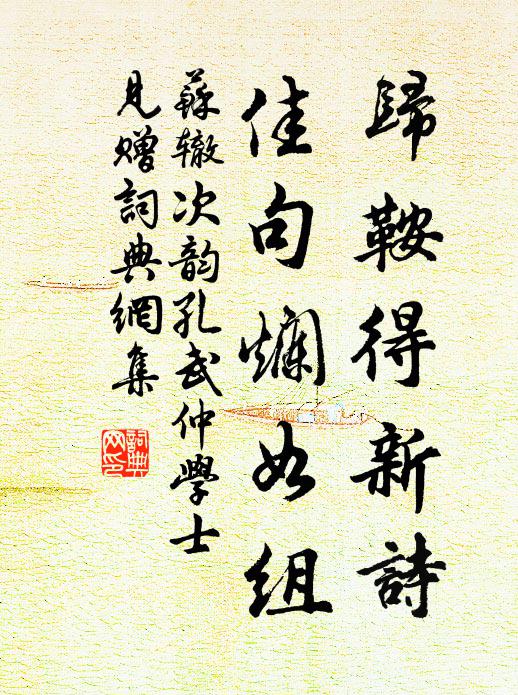 歸鞍得新詩
佳句爛如組
蘇辙次韵孔武仲學士
見贈詞典網集
詞典
网印